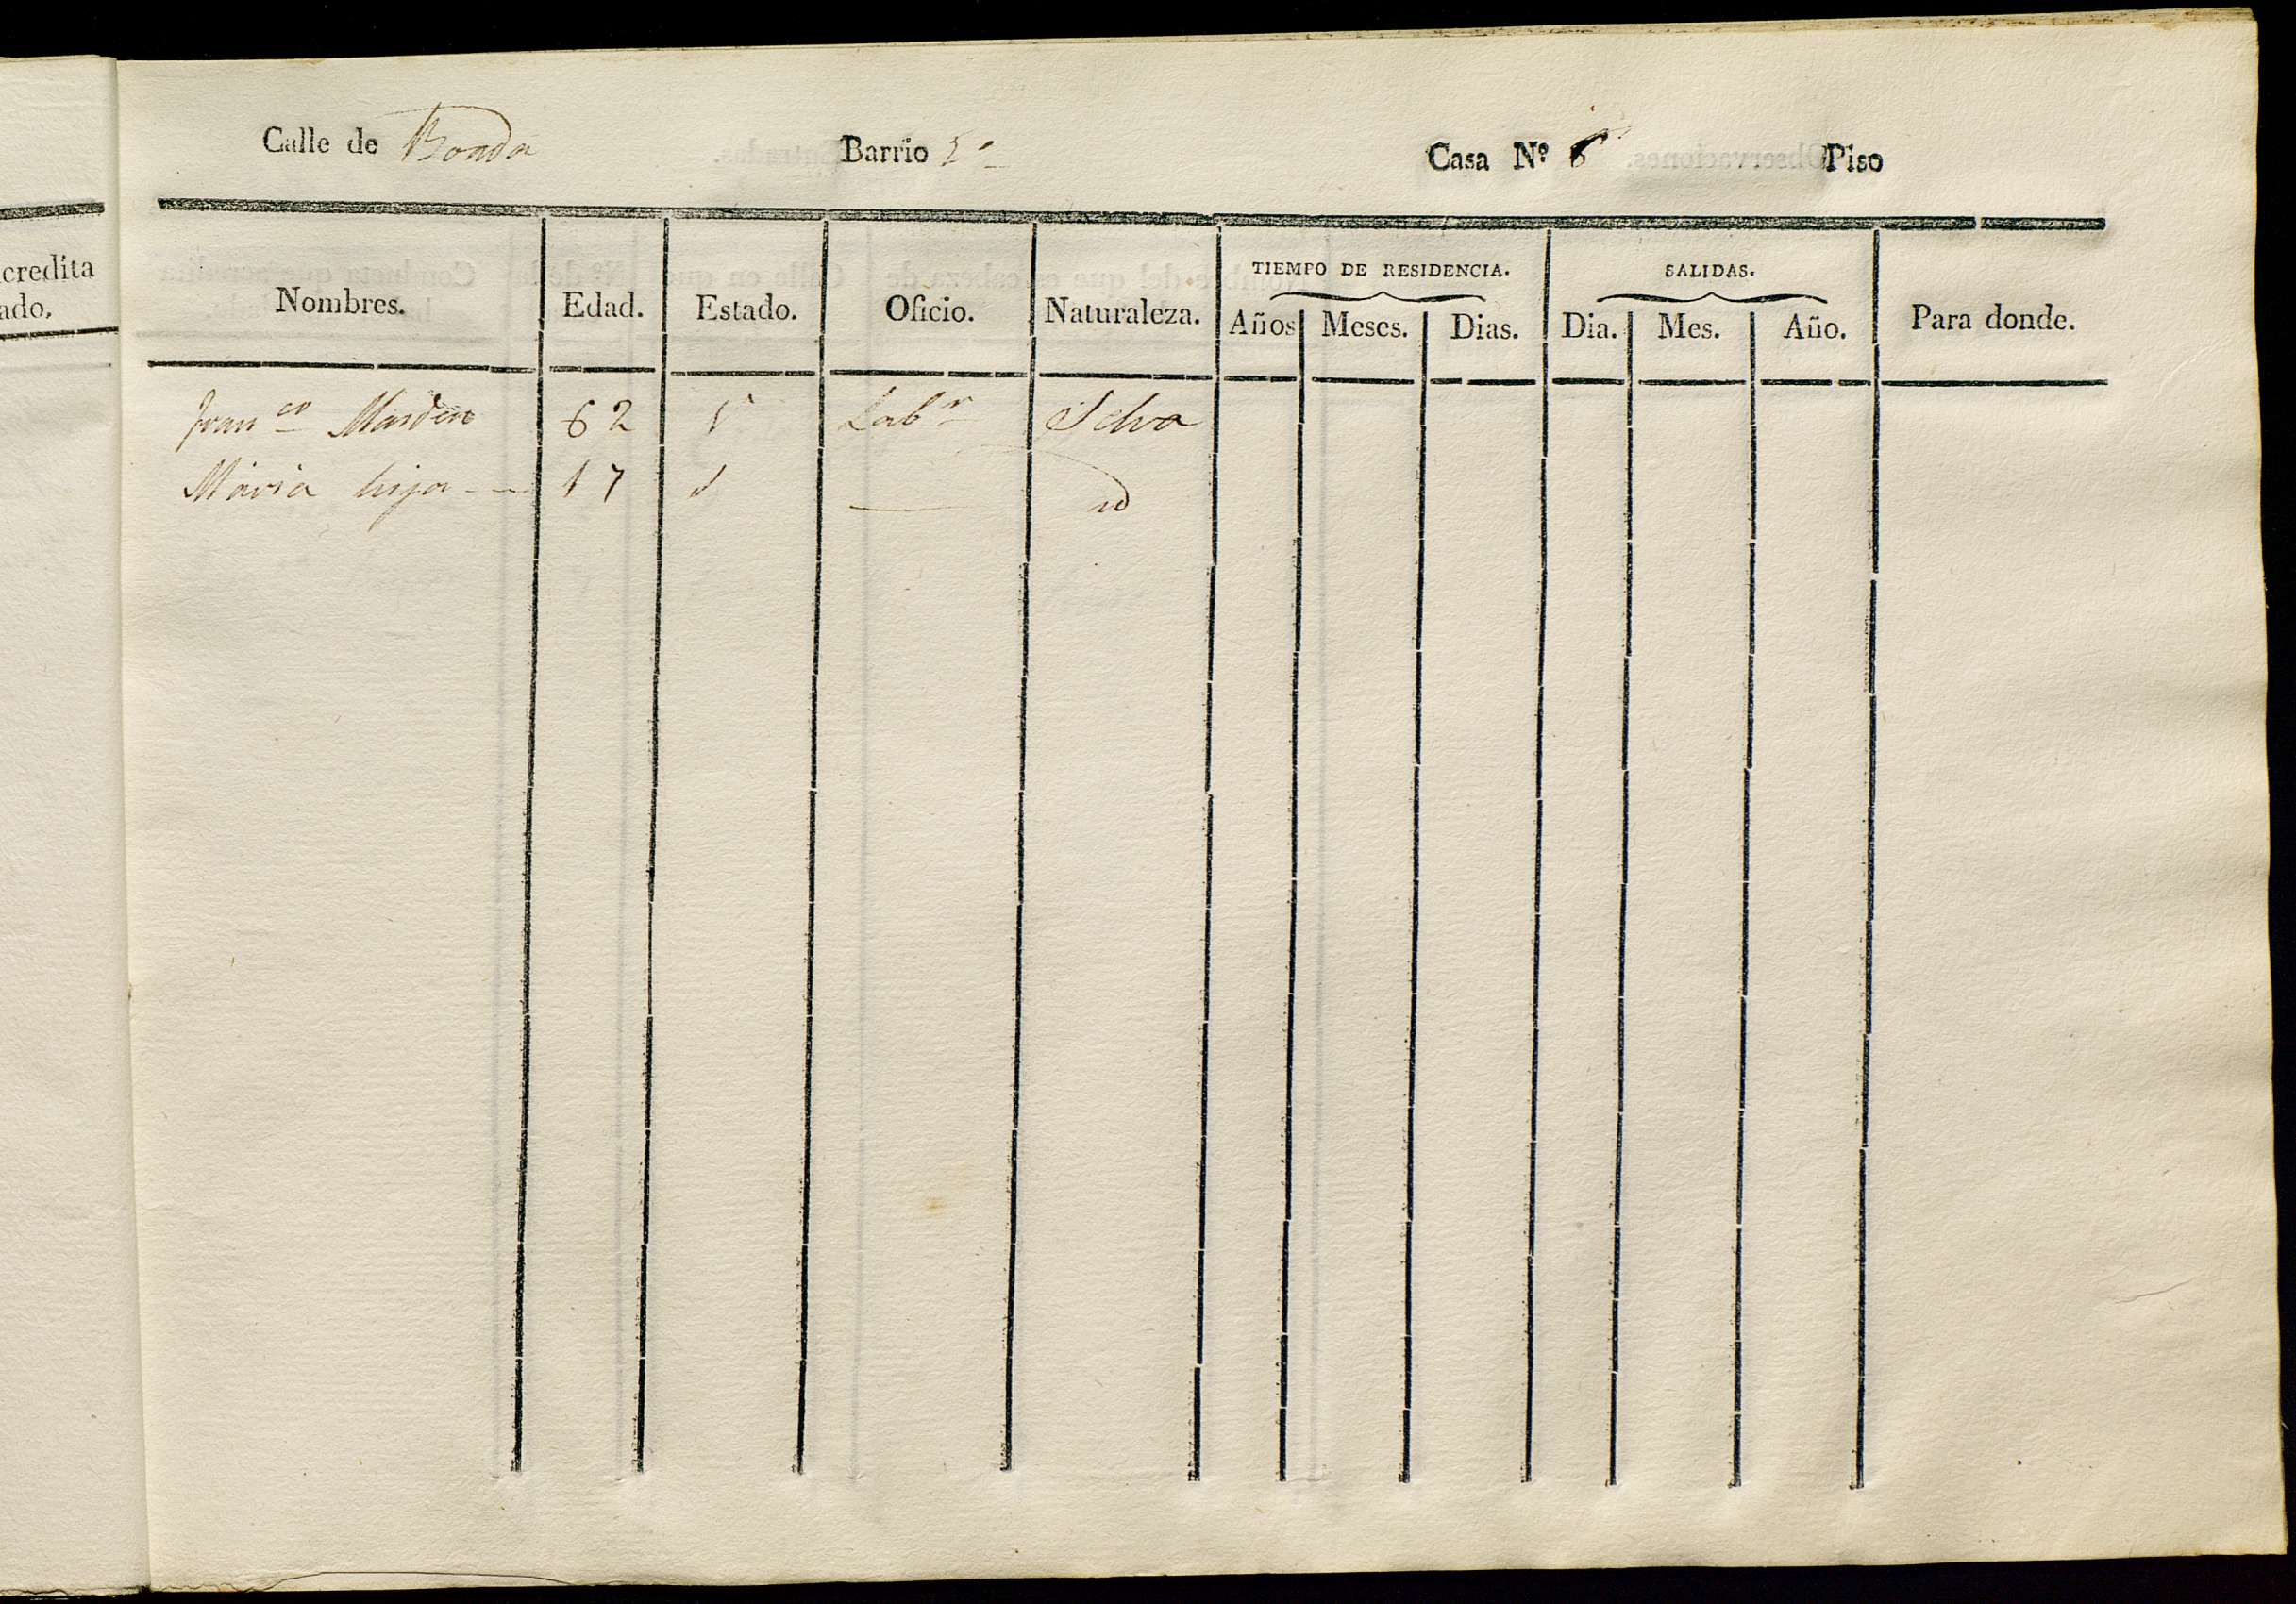 Calle de Ronda Barrio 5º Casa Nº 8 Piso
credita
ado.
TIEMPO DE RESIDENCIA. SALIDAS.
Nombres. Edad. Estado. Oficio. Naturaleza. Años Meses. Dias. Dia. Mes. Año. Para donde.
Fran.co 62 Lab.r Selva
Maria hija 17 id